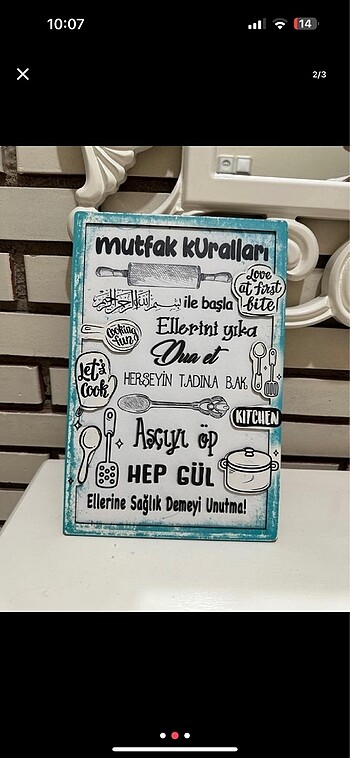 10:07
14
2/3
mutfak kuralları
Love
at first
bite
بسم الله الرحمن الرحيم ile başla
cooking
fun!
Ellerini yıka
Dua et
Let's
Cook
HERŞEYİN TADINA BAK
KITCHEN
Aşçıyı öp
HEP GÜL
Ellerine Sağlık Demeyi Unutma!